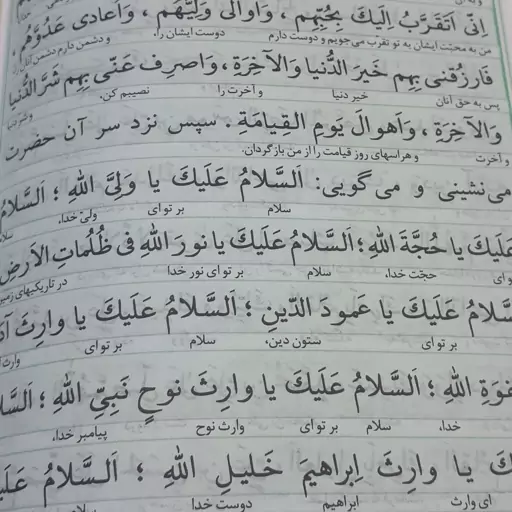 اِنّی اَتَقَرَّبُ اِلَیکَ بِحُبِّهِم ، وَاُوالی وَلِیَّهُم ، وَاُعادی عَدُوَّهُم ،
من به محبّت ایشان به تو تقرب می‌جویم و دوست دارم دوست ایشان را، و دشمن دارم دشمن آنان را
فَارزُقنی بِهِم خَیرَ الدُّنیا وَالآخِرَةِ ، وَاصرِف عَنّی بِهِم شَرَّ الدُّنیا
پس به حق آنان نصیبم کن، خیر دنیا و آخرت را
وَالآخِرَةِ ، وَاَهوالَ یَومِ القِیامَةِ . سپس نزد سر آن حضرت
و آخرت و هراسهای روز قیامت را از من بازگردان.
می‌نشینی و می‌گویی: اَلسَّلامُ عَلَیکَ یا وَلِیَّ اللهِ ؛ اَلسَّلامُ
سلام بر تو ای ولیّ خدا،
عَلَیکَ یا حُجَّةَ اللهِ ؛ اَلسَّلامُ عَلَیکَ یا نورَ اللهِ فی ظُلُماتِ الاَرضِ
حجّت خدا، سلام بر تو ای نور خدا در تاریکیهای زمین
اَلسَّلامُ عَلَیکَ یا عَمودَ الدّینِ ؛ اَلسَّلامُ عَلَیکَ یا وارِثَ
بر تو ای ستون دین، سلام بر تو ای
اللهِ ؛ اَلسَّلامُ عَلَیکَ یا وارِثَ نوحٍ نَبِیِّ اللهِ ؛
خدا، سلام بر تو ای وارث نوح پیامبر خدا،
یا وارِثَ اِبراهیمَ خَلیلِ اللهِ ؛ اَلسَّلامُ
ای وارث ابراهیم دوست خدا سلام